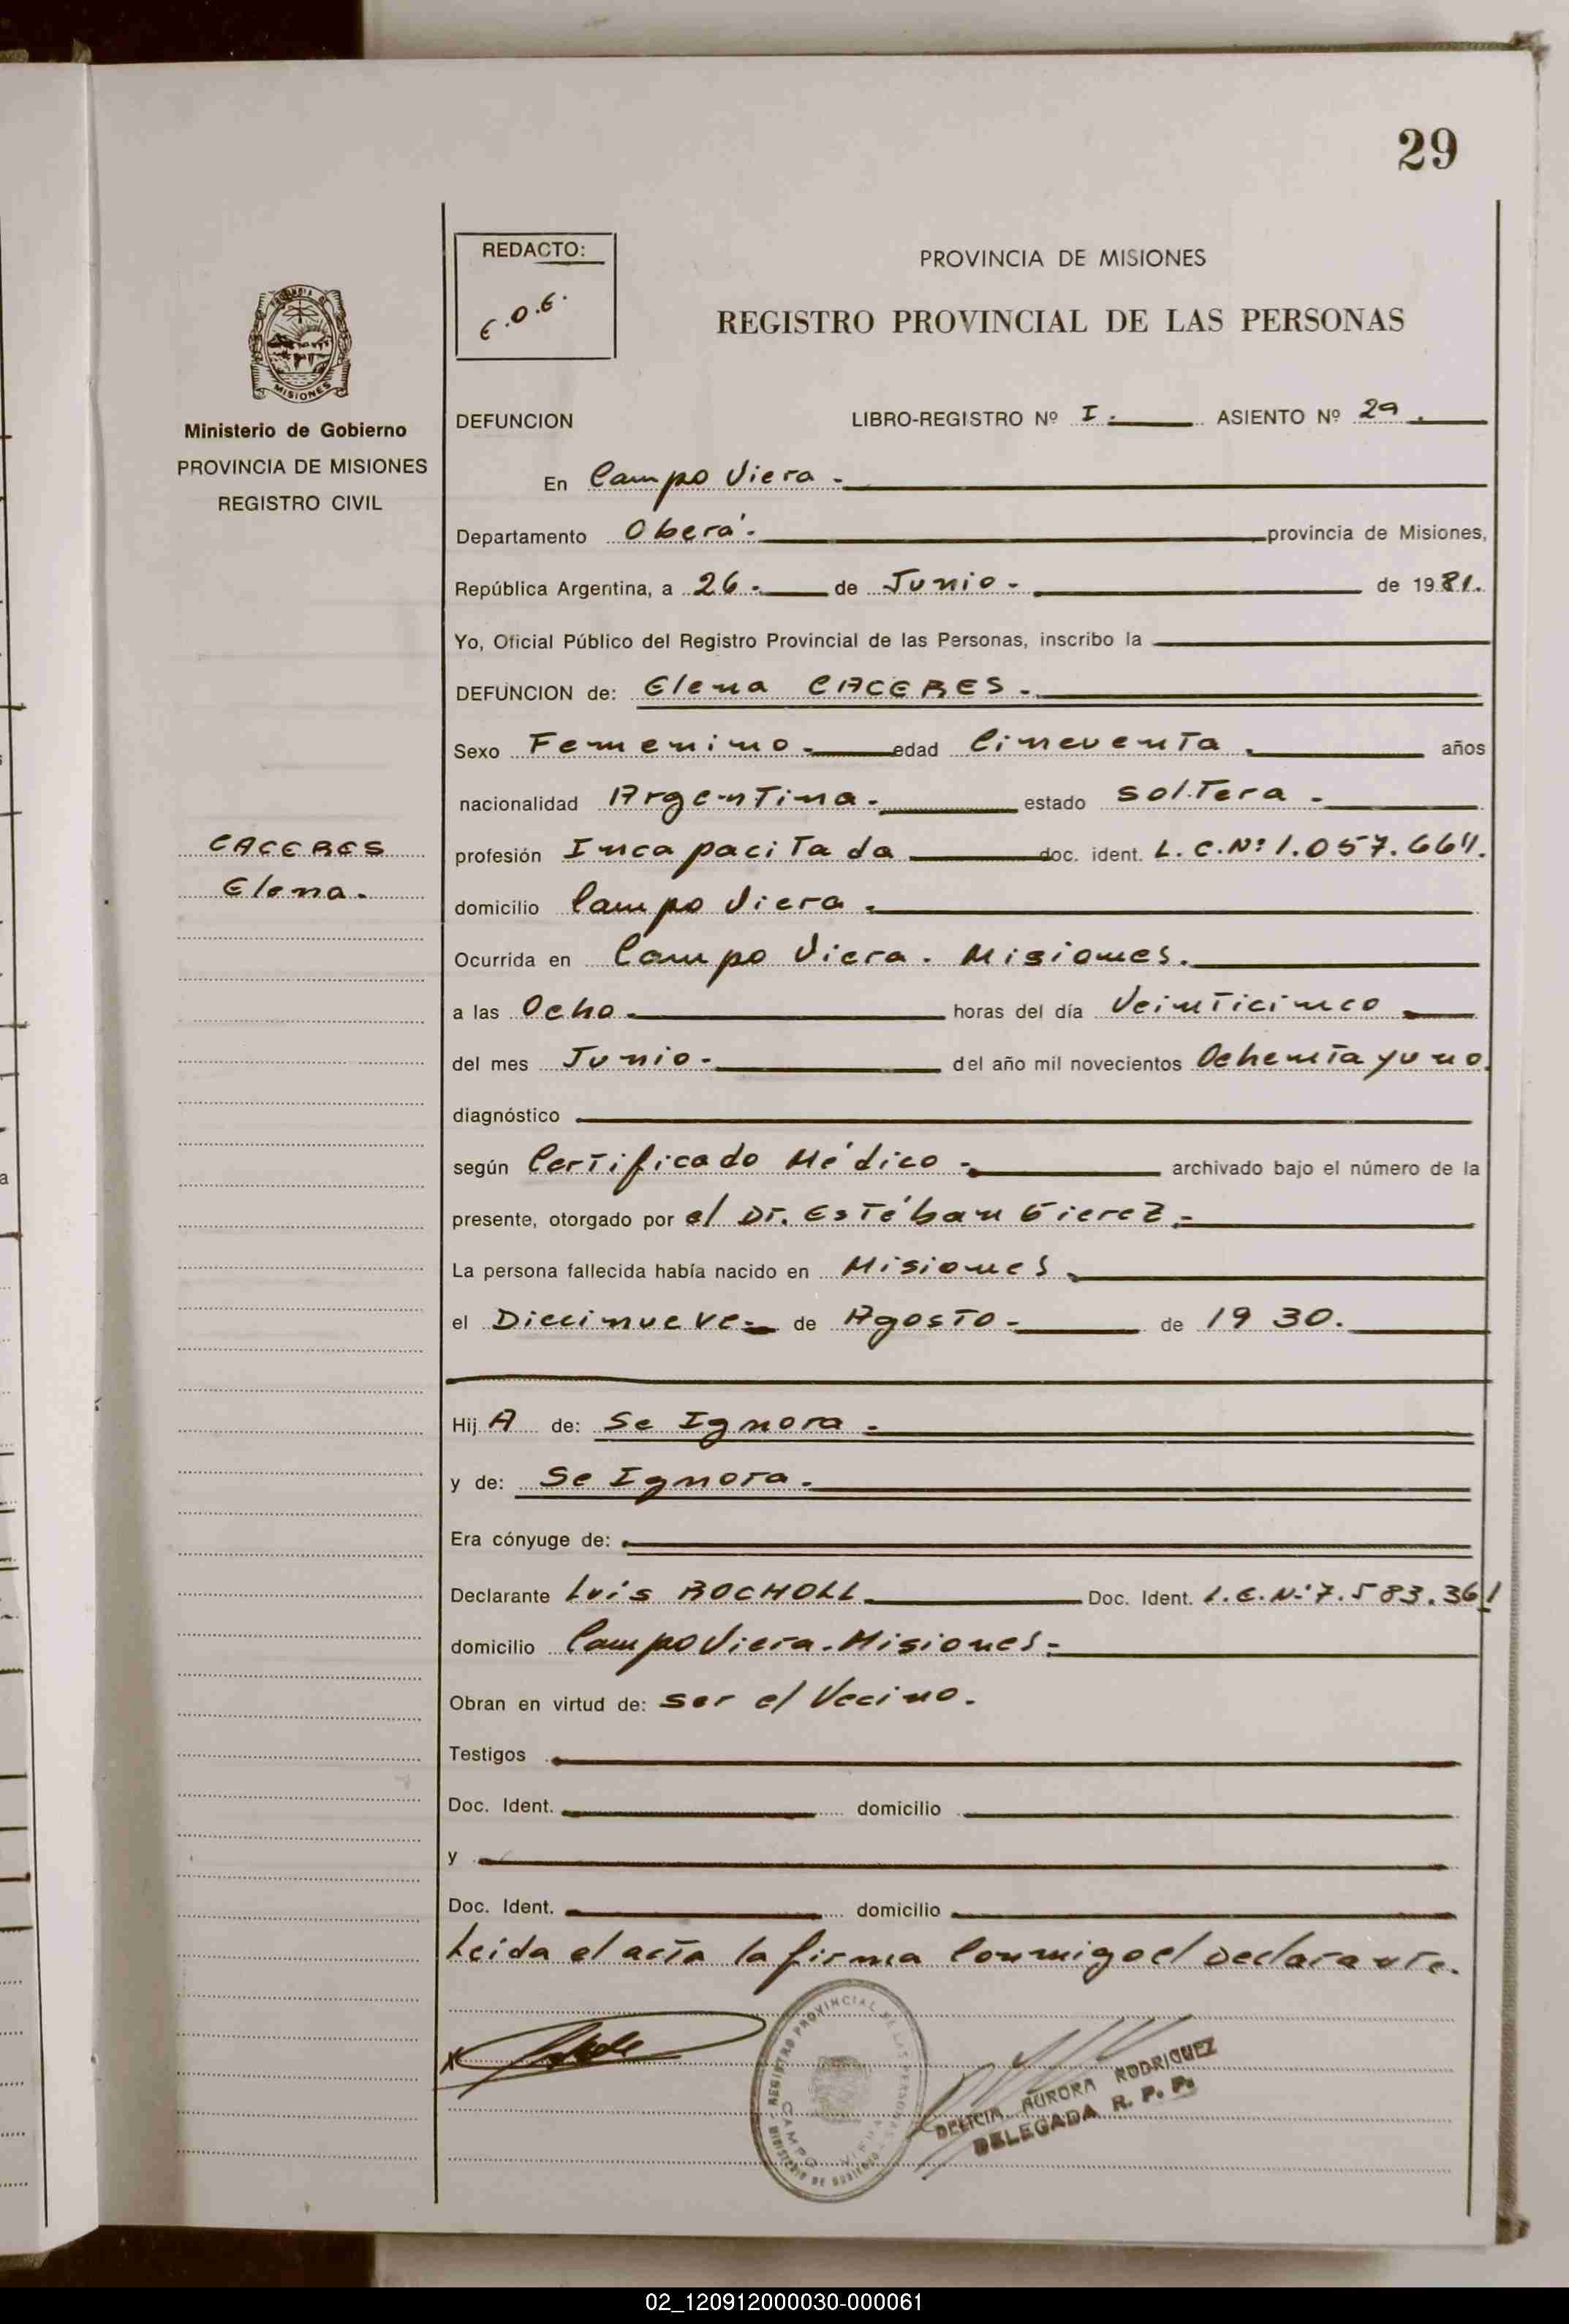 29
REDACTO:
PROVINCIA DE MISIONES
REGISTRO PROVINCIAL DE LAS PERSONAS
MISIONES
Ministerio de Gobierno
PROVINCIA DE MISIONES
REGISTRO CIVIL
DEFUNCION LIBRO-REGISTRO Nº I. ASIENTO Nº 29.
En Campo Viera.
Departamento Oberá. provincia de Misiones,
República Argentina, a 26. de Junio- de 1981.
Yo, Oficial Público del Registro Provincial de las Personas, inscribo la
DEFUNCION de: Elena CACERES.
Sexo Femenino. edad Cincuenta. años
nacionalidad Argentina. estado Soltera.
CACERES
Elena.
profesión Incapacitada doc. ident. L.C.Nº 1.057.664.
domicilio Campo Viera.
Ocurrida en Campo Viera. Misiones.
a las Ocho. horas del día Veinticinco
del mes Junio. del año mil novecientos Ochenta y uno.
diagnóstico
según Certificado Médico. archivado bajo el número de la
presente, otorgado por el Dr. Estéban
La persona fallecida había nacido en Misiones
el Diecinueve. de Agosto- de 1930.
Hij A de: Se Ignora.
y de: Se Ignora.
Era cónyuge de:
Declarante Luis ROCHOLL Doc. Ident. L.E.Nº 7.583.361
domicilio Campo Viera. Misiones.
Obran en virtud de: ser el Vecino.
Testigos
Doc. Ident. domicilio
y
Doc. Ident. domicilio
Leida el acta la firma Conmigo el Declarante.
REGISTRO PROVINCIAL DE LAS PERSONAS
CAMPO VIERA
MINISTERIO DE GOBIERNO
DELICIA AURORA RODRIGUEZ
DELEGADA R. P. P.
02_120912000030-000061